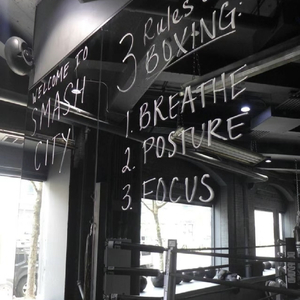 WELCOME TO
SMASH
CITY
3 Rules of
BOXING:
1. BREATHE
2. POSTURE
3. FOCUS